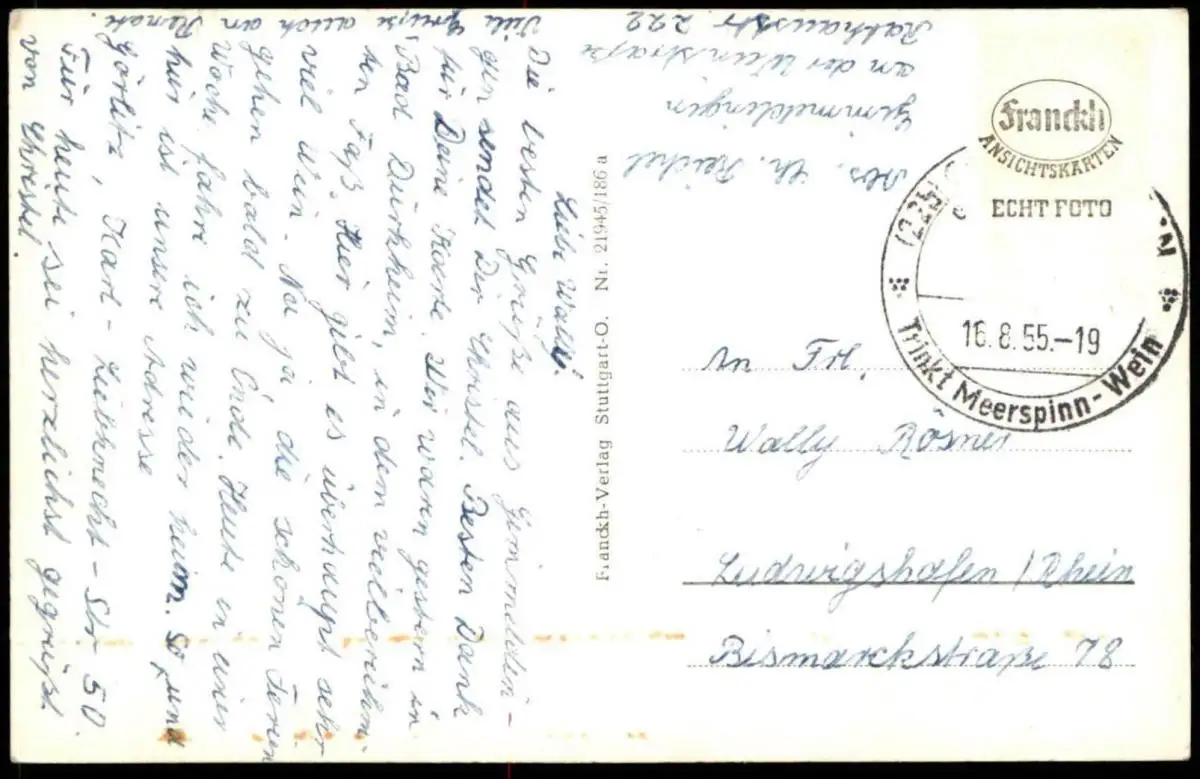 Liebe Wally!
Die besten Grüße aus Gimmeldin-
gen sendet Dir Christel. Besten Dank
für Deine Karte. Wir waren gestern in
Bad Dürkheim, in dem vielberühm-
ten Faß. Hier gibt es überhaupt sehr
viel Wein. Na ja die schönen Ferien
gehen bald zu Ende. Heute in einer
Woche fahre ich wieder heim. So, und
hier ist unsere Adresse
Görlitz, Karl-Liebknecht-Str 50
Für heute sei herzlichst gegrüßt
von Christel.
Viele Grüße auch an Renate.
Abs. Ch. Reichel
Gimmeldingen
an der Weinstraße
Rathausstr. 222
Franckh-Verlag Stuttgart-O. Nr. 21945/186 a
Franckh
ANSICHTSKARTEN
ECHT FOTO
(22b)
N
16.8.55.-19
Trinkt Meerspinn-Wein
An Frl.
Wally Rösner
Ludwigshafen / Rhein
Bismarckstraße 78